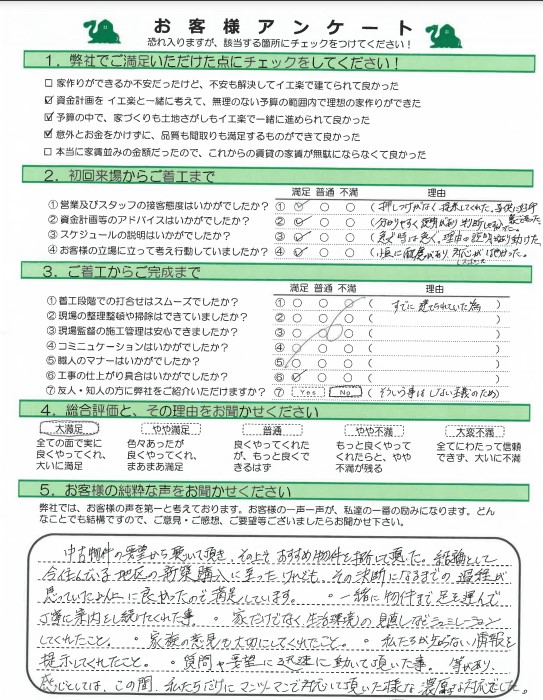 お客様アンケート
恐れ入りますが、該当する箇所にチェックをつけてください！
１．弊社でご満足いただけた点にチェックをしてください！
□ 家作りができるか不安だったけど、不安も解決してイエ楽で建てられて良かった
☑ 資金計画を イエ楽と一緒に考えて、無理のない予算の範囲内で理想の家作りができた
☑ 予算の中で、家づくりも土地さがしもイエ楽で一緒に進められて良かった
☑ 意外とお金をかけずに、品質も間取りも満足するものができて良かった
□ 本当に家賃並みの金額だったので、これからの賃貸の家賃が無駄にならなくて良かった
２．初回来場からご着工まで
満足 普通 不満 理由
①営業及びスタッフの接客態度はいかがでしたか？ ① ( 押しつけがなく提案してくれた。
②資金計画等のアドバイスはいかがでしたか？ ② ( 分かりやすく説明があり
③スケジュールの説明はいかがでしたか？ ③ ( 急ぐ時は急ぐ。理由の説明があり動けた。
④お客様の立場に立って考え行動していましたか？ ④ ( 対応が
３．ご着工からご完成まで
満足 普通 不満 理由
①着工段階での打合せはスムーズでしたか？ ① ○ ○ ( すでに建てられていた為 )
②現場の整理整頓や掃除はできていましたか？ ② ○ ○ ( )
③現場監督の施工管理は安心できましたか？ ③ ○ ○ ( )
④コミュニケーションはいかがでしたか？ ④ ○ ○ ( )
⑤職人のマナーはいかがでしたか？ ⑤ ○ ○ ( )
⑥工事の仕上がり具合はいかがでしたか？ ⑥ ○ ○ ( )
⑦友人・知人の方に弊社をご紹介いただけますか？ ⑦ Yes No ( そういう事はしない主義のため )
４．総合評価と、その理由をお聞かせください
大満足 やや満足 普通 やや不満 大変不満
全ての面で実に 色々あったが 良くやってくれた もっと良くやって 全てにわたって信頼
良くやってくれ、 良くやってくれて、 が、もっと良くで くれたらと、やや できず、大いに不満
大いに満足 まあまあ満足 きるはず 不満が残る
５．お客様の純粋な声をお聞かせください
弊社では、お客様の声を第一と考えております。お客様の一声一声が、私達の一番の励みになります。どん
なことでも結構ですので、ご意見・ご感想、ご要望等ございましたらお聞かせ下さい。
中古物件の見学から乗って頂き、その上で おすすめ物件を探して頂いた。結論として
今住んでいる地区の新築購入に至ったけれども、その決断になるまでの過程が
思っていた以上に良かったので満足しています。 ・一緒に物件まで足を運んで
丁寧に案内を続けてくれた事。 ・家だけでなく生活環境の見直しなどシュミレーション
してくれたこと。 ・家族の意見を大切にしてくれたこと。 ・私たちが知らない情報を
提示してくれたこと。 ・質問や要望に迅速に動いて頂いた事。 等があり、
感じとしては、この間、私たちだけにマンツーマンで対応して頂いた様な濃厚な対応でした。